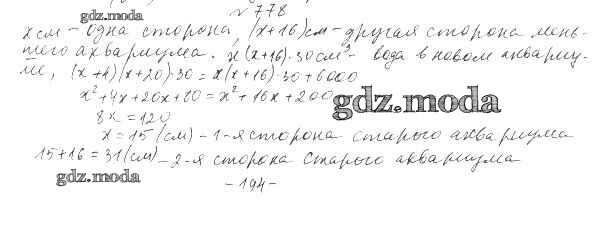 gdz.moda
№ 778
x см – одна сторона, (x+16) см – другая сторона мень-
шего аквариума. x(x+16)·30 см³ – вода в новом аквариу-
ме, (x+4)(x+20)·30 = x(x+16)·30+6000
x²+4x+20x+80 = x²+16x+200
gdz.moda
8x = 120
x = 15 (см) – 1-я сторона старого аквариума
15+16 = 31 (см) – 2-я сторона старого аквариума
gdz.moda
– 194 –